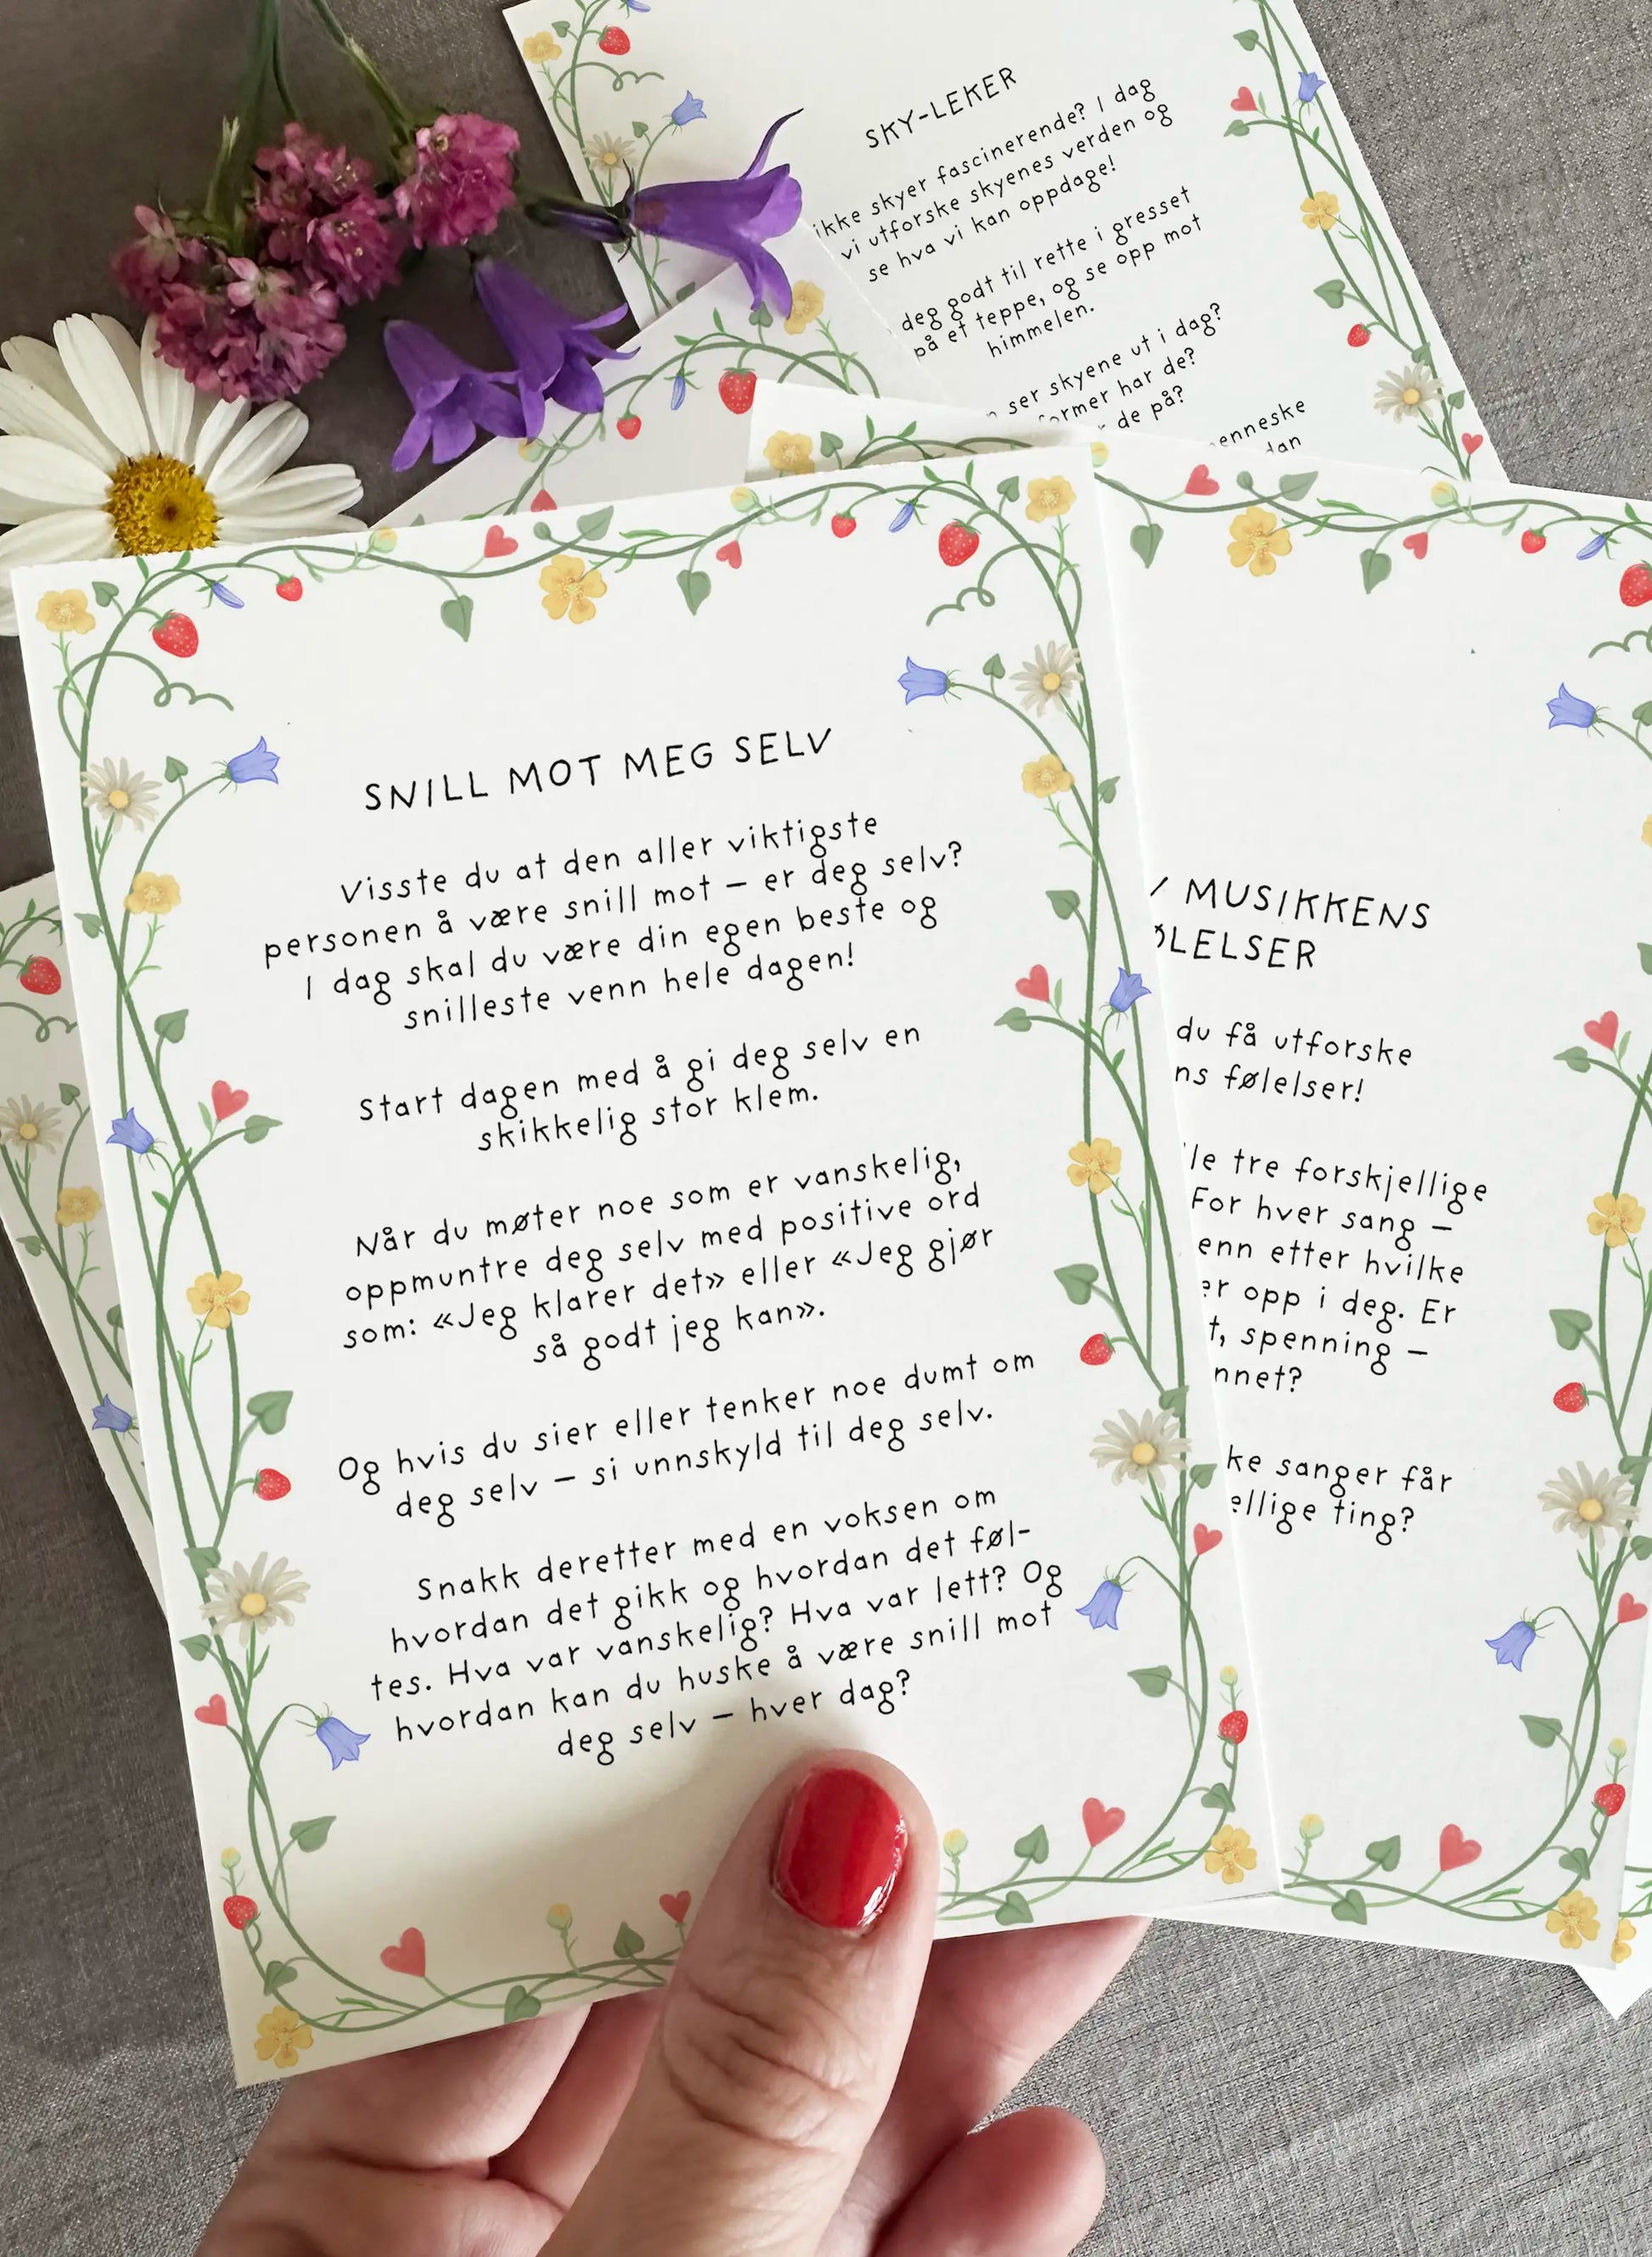 SKY-LEKER
ikke skyer fascinerende? I dag
vi utforske skyenes verden og
se hva vi kan oppdage!
deg godt til rette i gresset
på et teppe, og se opp mot
himmelen.
ser skyene ut i dag?
former har de?
de på?
SNILL MOT MEG SELV
Visste du at den aller viktigste
personen å være snill mot – er deg selv?
I dag skal du være din egen beste og
snilleste venn hele dagen!
Start dagen med å gi deg selv en
skikkelig stor klem.
Når du møter noe som er vanskelig,
oppmuntre deg selv med positive ord
som: «Jeg klarer det» eller «Jeg gjør
så godt jeg kan».
Og hvis du sier eller tenker noe dumt om
deg selv – si unnskyld til deg selv.
Snakk deretter med en voksen om
hvordan det gikk og hvordan det føl-
tes. Hva var vanskelig? Hva var lett? Og
hvordan kan du huske å være snill mot
deg selv – hver dag?
MUSIKKENS
du få utforske
følelser!
tre forskjellige
For hver sang –
etter hvilke
opp i deg. Er
spenning –
sanger får
ting?